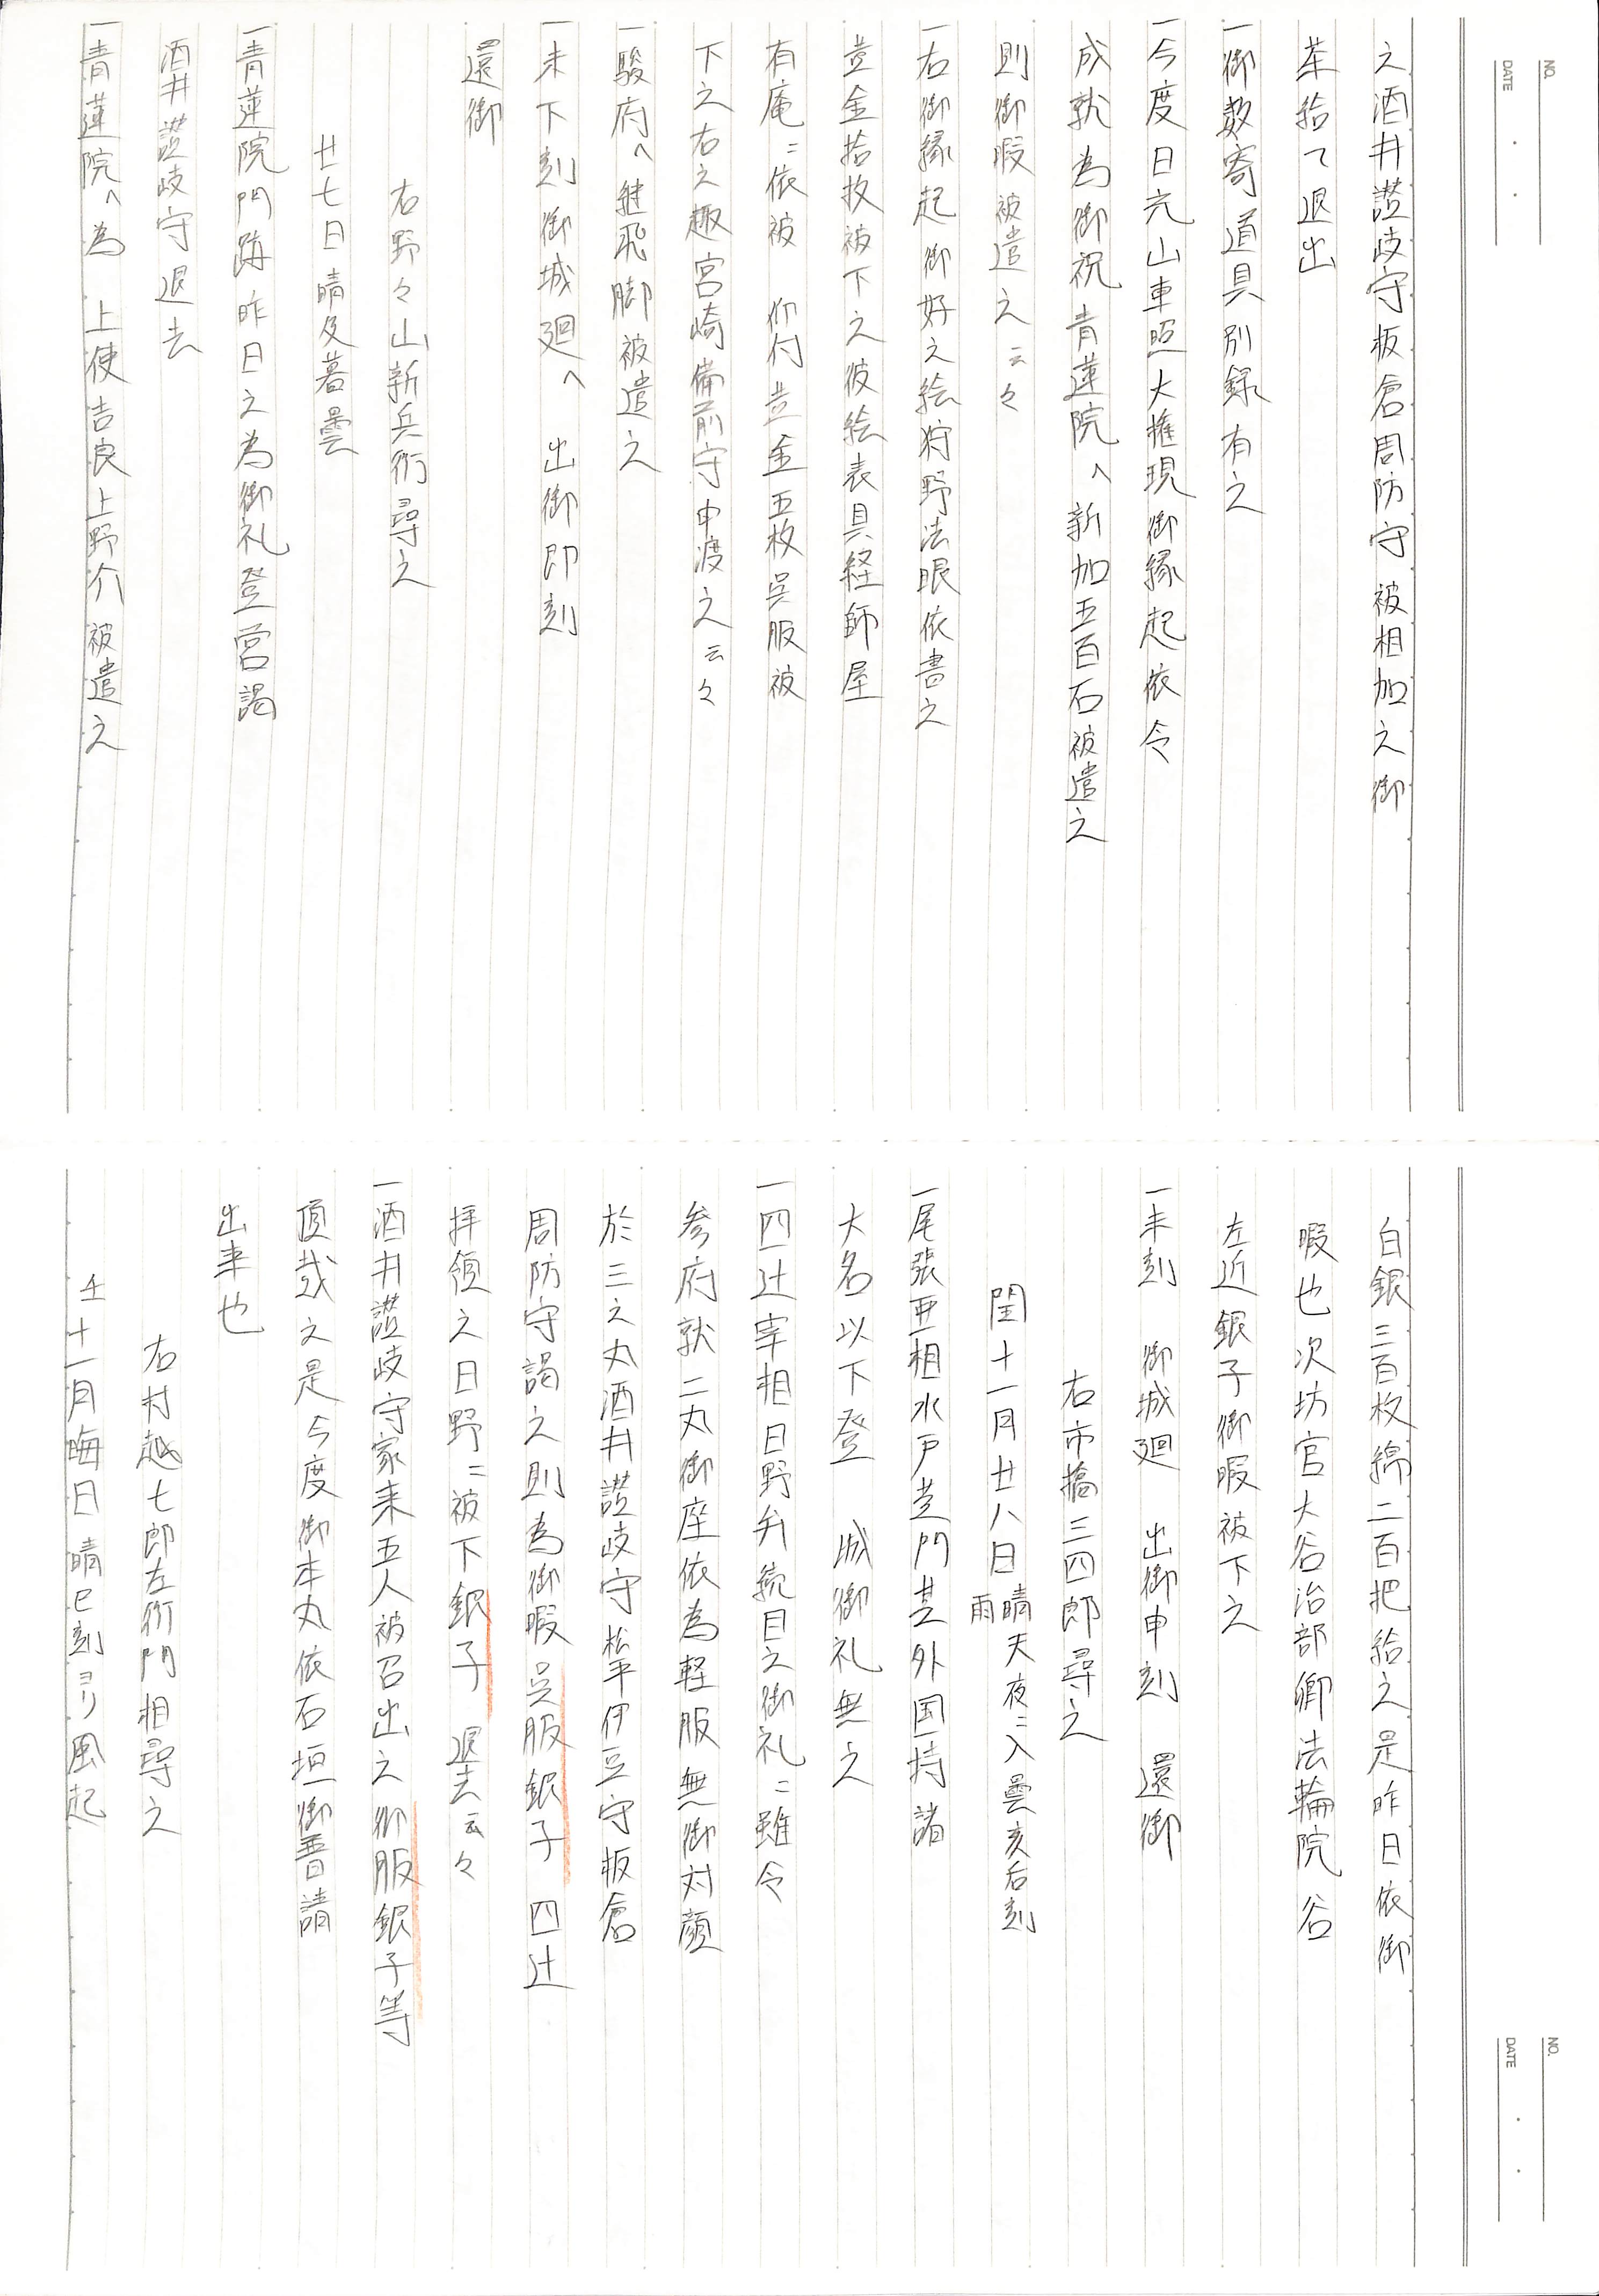 NO.
DATE
之酒井讃岐守板倉周防守被相加之御
茶給て退出
一御数寄道具別録有之
一今度日光山東照大権現御縁起依令
成就為御祝青蓮院へ新加五百石被遣之
則御暇被遣之云々
一右御縁起御好之絵狩野法眼依書之
黄金拾枚被下之彼絵表具経師屋
有庵ニ依被 仰付黄金五枚呉服被
下之右之趣宮崎備前守申渡之云々
一駿府へ継飛脚被遣之
一未下刻御城廻へ 出御即刻
還御
右野々山新兵衛尋之
廿七日晴及暮曇
一青蓮院門跡昨日之為御礼登営謁
酒井讃岐守退去
一青蓮院へ為 上使吉良上野介被遣之
NO.
DATE
白銀三百枚綿二百把給之是昨日依御
暇也次坊官大谷治部卿法輪院谷
左近銀子御暇被下之
一未刻 御城廻 出御申刻 還御
右市橋三四郎尋之
閏十一月廿八日晴天夜ニ入曇亥后刻雨
一尾張亜相水戸黄門其外国持諸
大名以下登 城御礼無之
一四辻宰相日野弁続目之御礼ニ雖令
参府就二丸御座依為軽服無御対顔
於三之丸酒井讃岐守松平伊豆守板倉
周防守謁之則為御暇呉服銀子 四辻
拝領之日野ニ被下銀子 退去云々
一酒井讃岐守家来五人被召出之御服銀子等
頂戴之是今度御本丸依石垣御普請
出来也
右村越七郎左衛門相尋之
壬十一月晦日晴巳刻ヨリ風起